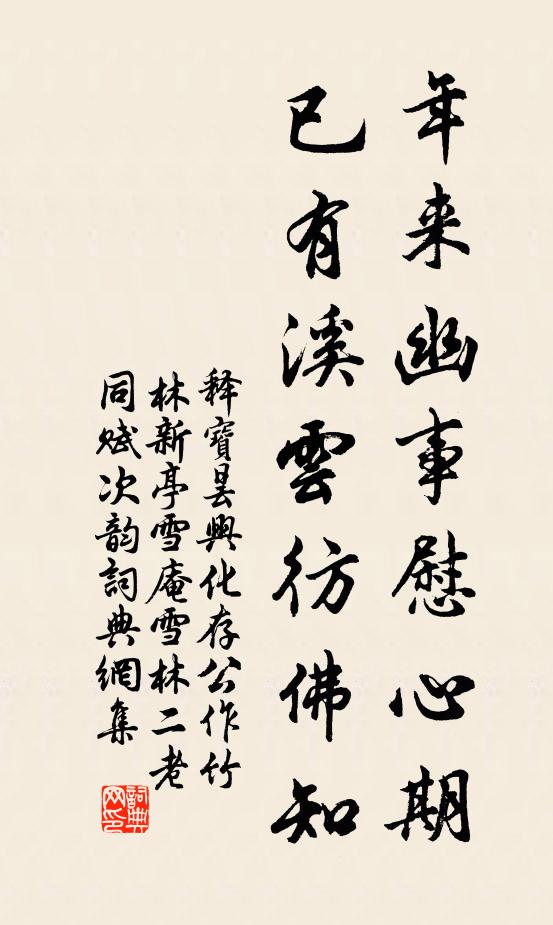 年来幽事慰心期
已有溪雲彷佛知
释寶曇興化存公作竹
林新亭雪庵雪林二老
同赋次韵詞典網集
詞典
网印